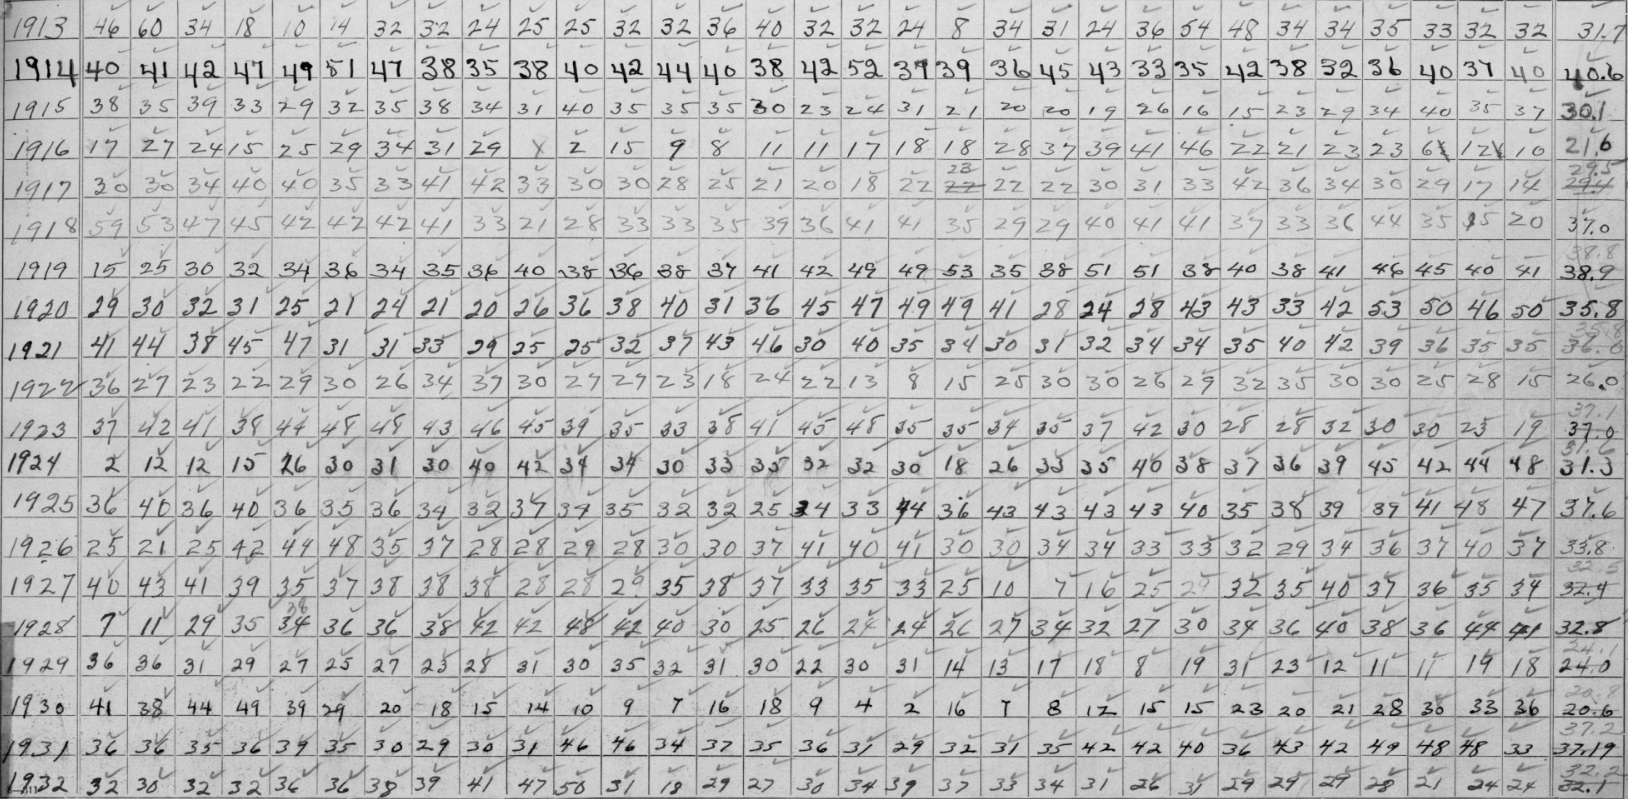 1913 46 60 34 18 10 14 32 32 24 25 25 32 32 36 40 32 32 24 8 34 31 24 36 54 48 34 34 35 33 32 32 31.7
1914 40 41 42 47 49 51 47 38 35 38 40 42 44 40 38 42 52 39 39 36 45 43 33 35 42 38 32 36 40 37 40 40.6
1915 38 35 39 33 29 32 35 38 34 31 40 35 35 35 30 23 24 31 21 20 20 19 26 16 15 23 29 34 40 35 37 30.1
1916 17 27 24 15 25 29 34 31 29 2 15 9 8 11 11 17 18 18 28 37 39 41 46 22 21 23 23 6 12 10 21.6
23 29.5
1917 30 30 34 40 40 35 33 41 42 33 30 30 28 25 21 20 18 22 22 22 22 30 31 33 42 36 34 30 29 17 14 29.4
1918 59 53 47 45 42 42 42 41 33 21 28 33 33 35 39 36 41 41 35 29 29 40 41 41 37 33 36 44 35 15 20 37.0
38.8
1919 15 25 30 32 34 36 34 35 36 40 38 36 38 37 41 42 49 49 53 35 38 51 51 38 40 38 41 46 45 40 41 38.9
1920 29 30 32 31 25 21 24 21 20 26 36 38 40 31 36 45 47 49 49 41 28 24 28 43 43 33 42 53 50 46 50 35.8
35.8
1921 41 44 38 45 47 31 31 33 29 25 25 32 37 43 46 30 40 35 34 30 31 32 34 34 35 40 42 39 36 35 35 36.0
1922 36 27 23 22 29 30 26 34 37 30 27 27 23 18 24 22 13 8 15 25 30 30 26 29 32 35 30 30 25 28 15 26.0
37.1
1923 37 42 41 38 44 48 48 43 46 45 39 35 33 38 41 45 48 35 35 34 35 37 42 30 28 28 32 30 30 23 19 37.0
31.6
1924 2 12 12 15 26 30 31 30 40 42 34 34 30 33 35 32 32 30 18 26 33 35 40 38 37 36 39 45 42 44 48 31.3
1925 36 40 36 40 36 35 36 34 32 37 37 35 32 32 25 34 33 44 36 43 43 43 43 40 35 38 39 39 41 48 47 37.6
1926 25 21 25 42 44 48 35 37 28 28 29 28 30 30 37 41 40 41 30 30 34 34 33 33 32 29 34 36 37 40 37 33.8
32.5
1927 40 43 41 39 35 37 38 38 38 28 28 29 35 38 37 33 35 33 25 10 7 16 25 29 32 35 40 37 36 35 34 32.4
38
1928 7 11 29 35 34 36 36 38 42 42 48 42 40 30 25 26 24 24 26 27 34 32 27 30 34 36 40 38 36 44 41 32.8
24.1
1929 36 36 31 29 27 25 27 23 28 31 30 35 32 31 30 22 30 31 14 13 17 18 8 19 31 23 12 11 11 19 18 24.0
20.8
1930 41 38 44 49 39 29 20 18 15 14 10 9 7 16 18 9 4 2 16 7 8 12 15 15 23 20 21 28 30 33 36 20.6
37.2
1931 36 36 35 36 39 35 30 29 30 31 46 46 34 37 35 36 31 29 32 31 35 42 42 40 36 43 42 49 48 48 33 37.19
32.2
1932 32 30 32 32 36 36 38 39 41 47 50 31 18 29 27 30 34 39 37 33 34 31 26 31 29 29 29 28 21 24 24 32.1